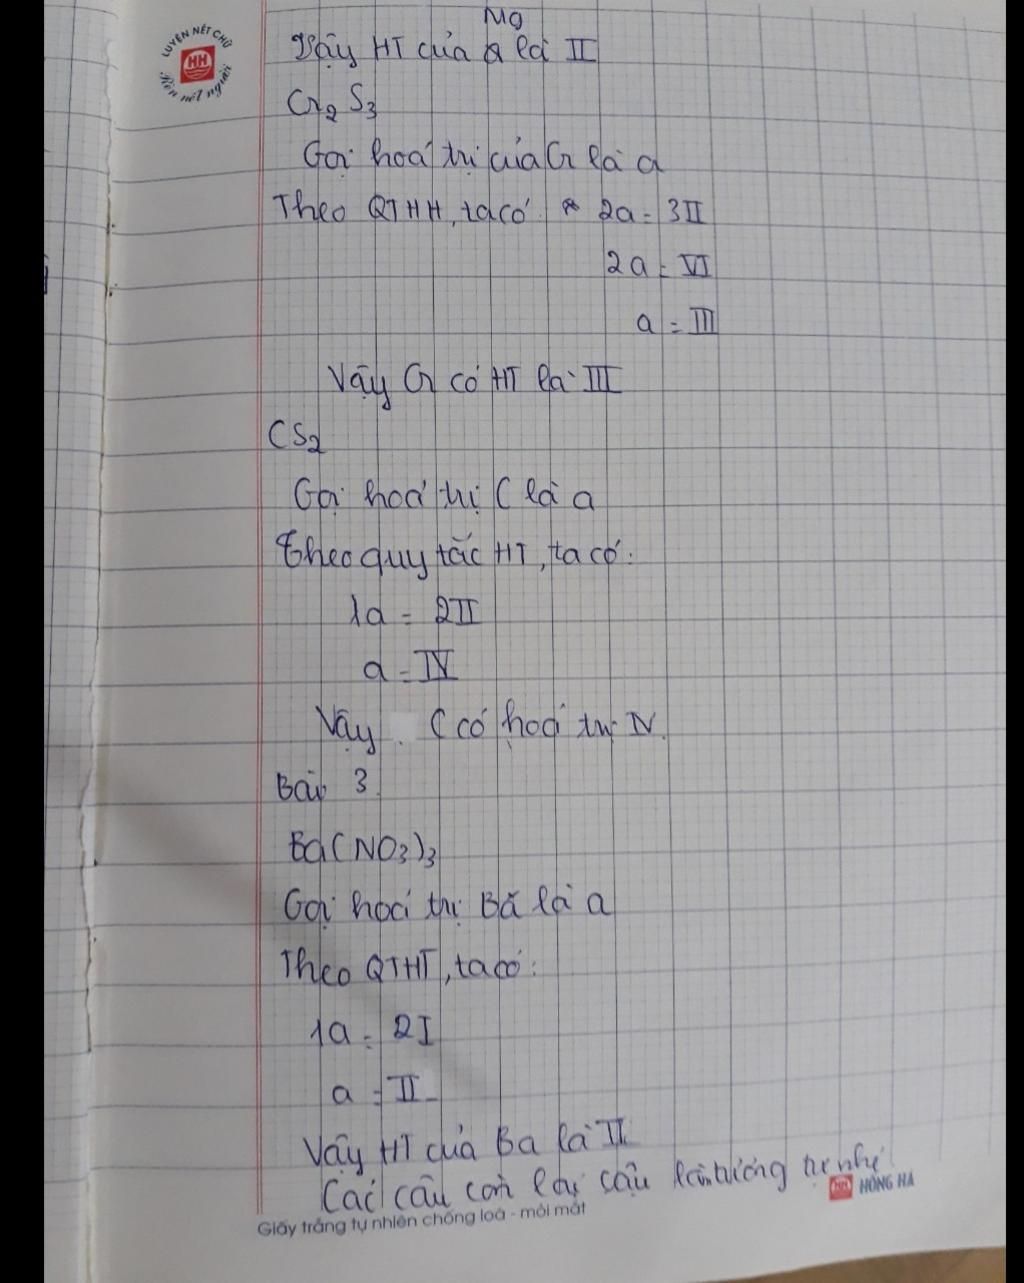 LUYỆN NẾT CHỮ
HH
Rèn nết người
Mg
Vậy HT của là II
Cr2S3
Gọi hoá trị của Cr là a
Theo QTHH, ta có 2a = 3II
2a = VI
a = III
Vậy Cr có HT là III
CS2
Gọi hoá trị C là a
Theo quy tắc HT, ta có:
1a = 2II
a = IV
Vậy C có hoá trị IV.
Bài 3.
Ba(NO3)3
Gọi hoá trị Ba là a
Theo QTHT, ta có:
1a = 2I
a = II
Vậy HT của Ba là II
Các câu còn lại cậu làm tương tự nhé
HH HỒNG HÀ
Giấy trắng tự nhiên chống loá - mỏi mắt